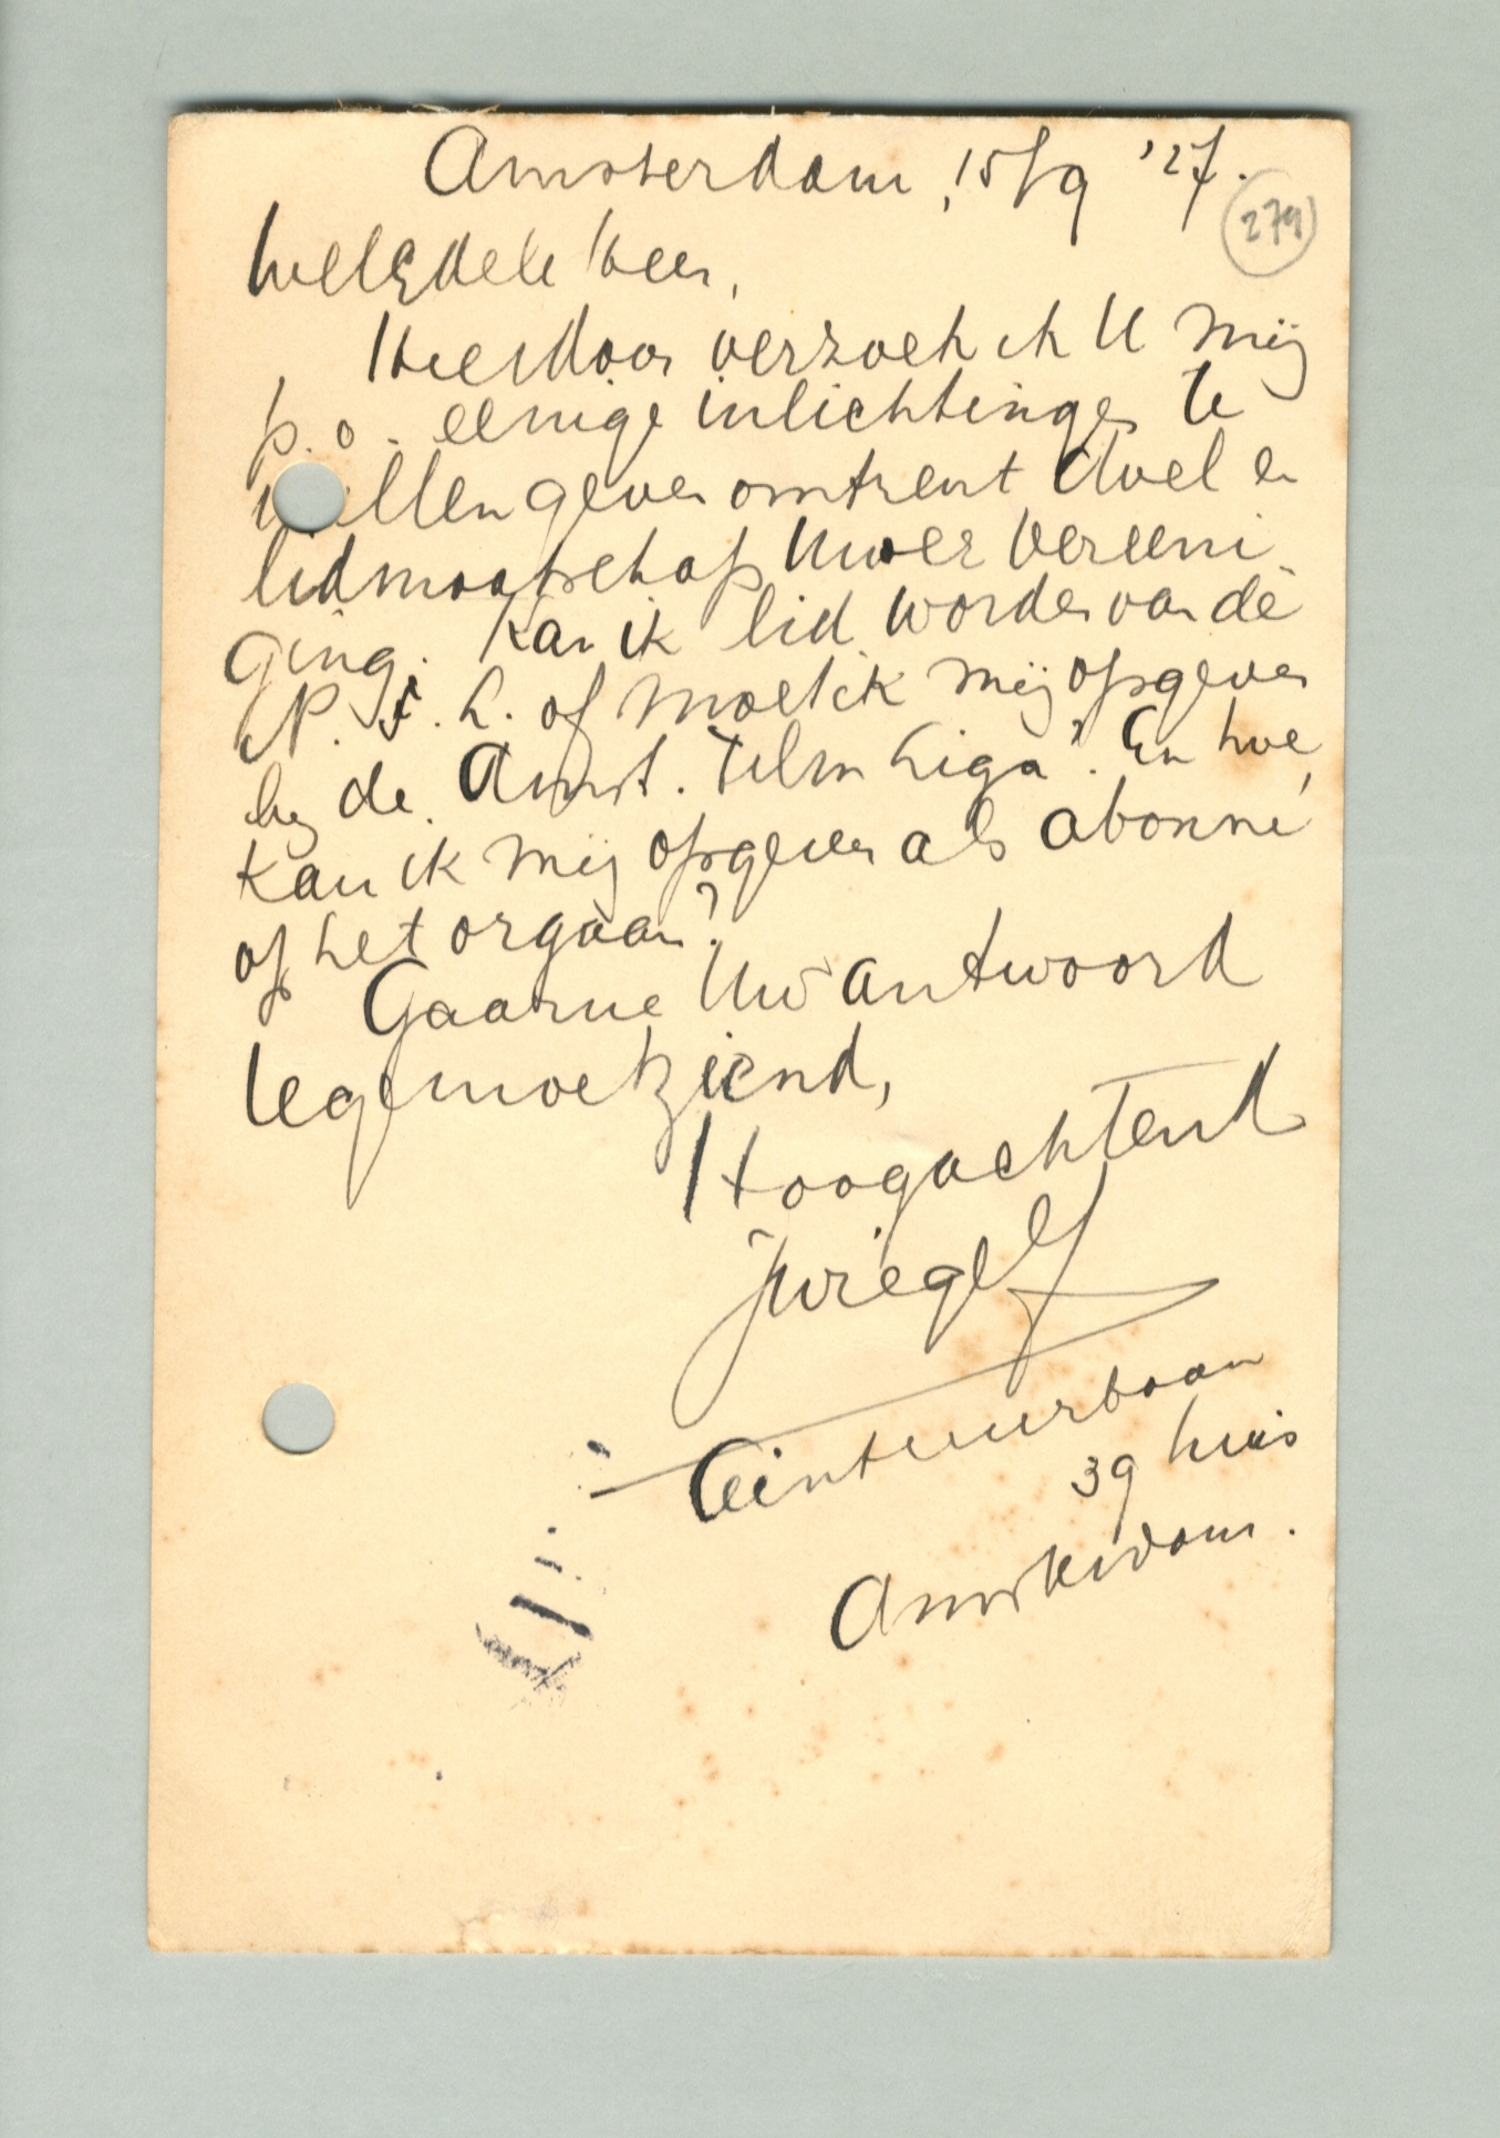 Amsterdam, 15/9 '27.
279
WelEdele Heer,
Hierdoor verzoek ik U mij
p.o. eenige inlichtingen te
willen geven omtrent doel en
lidmaatschap Uwer Vereeni-
ging. Kan ik lid worden van de
N.F.L. of moet ik mij opgeven
bij de Amst. Film Liga? En hoe
kan ik mij opgeven als abonné
op het orgaan?
Gaarne Uw antwoord
tegemoetziend,
Hoogachtend
Ceintuurbaan
39 huis
Amsterdam.